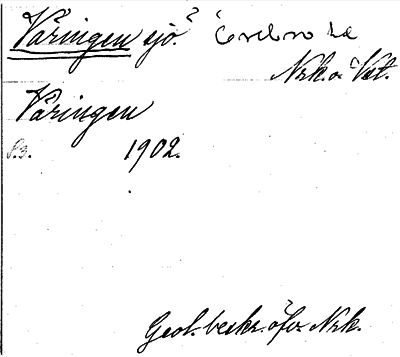 Väringen sjö. ? Örebro lä
Nrk. o. Vst.
Väringen
S. 3. 1902.
Geol. beskr. öfver Nrk.